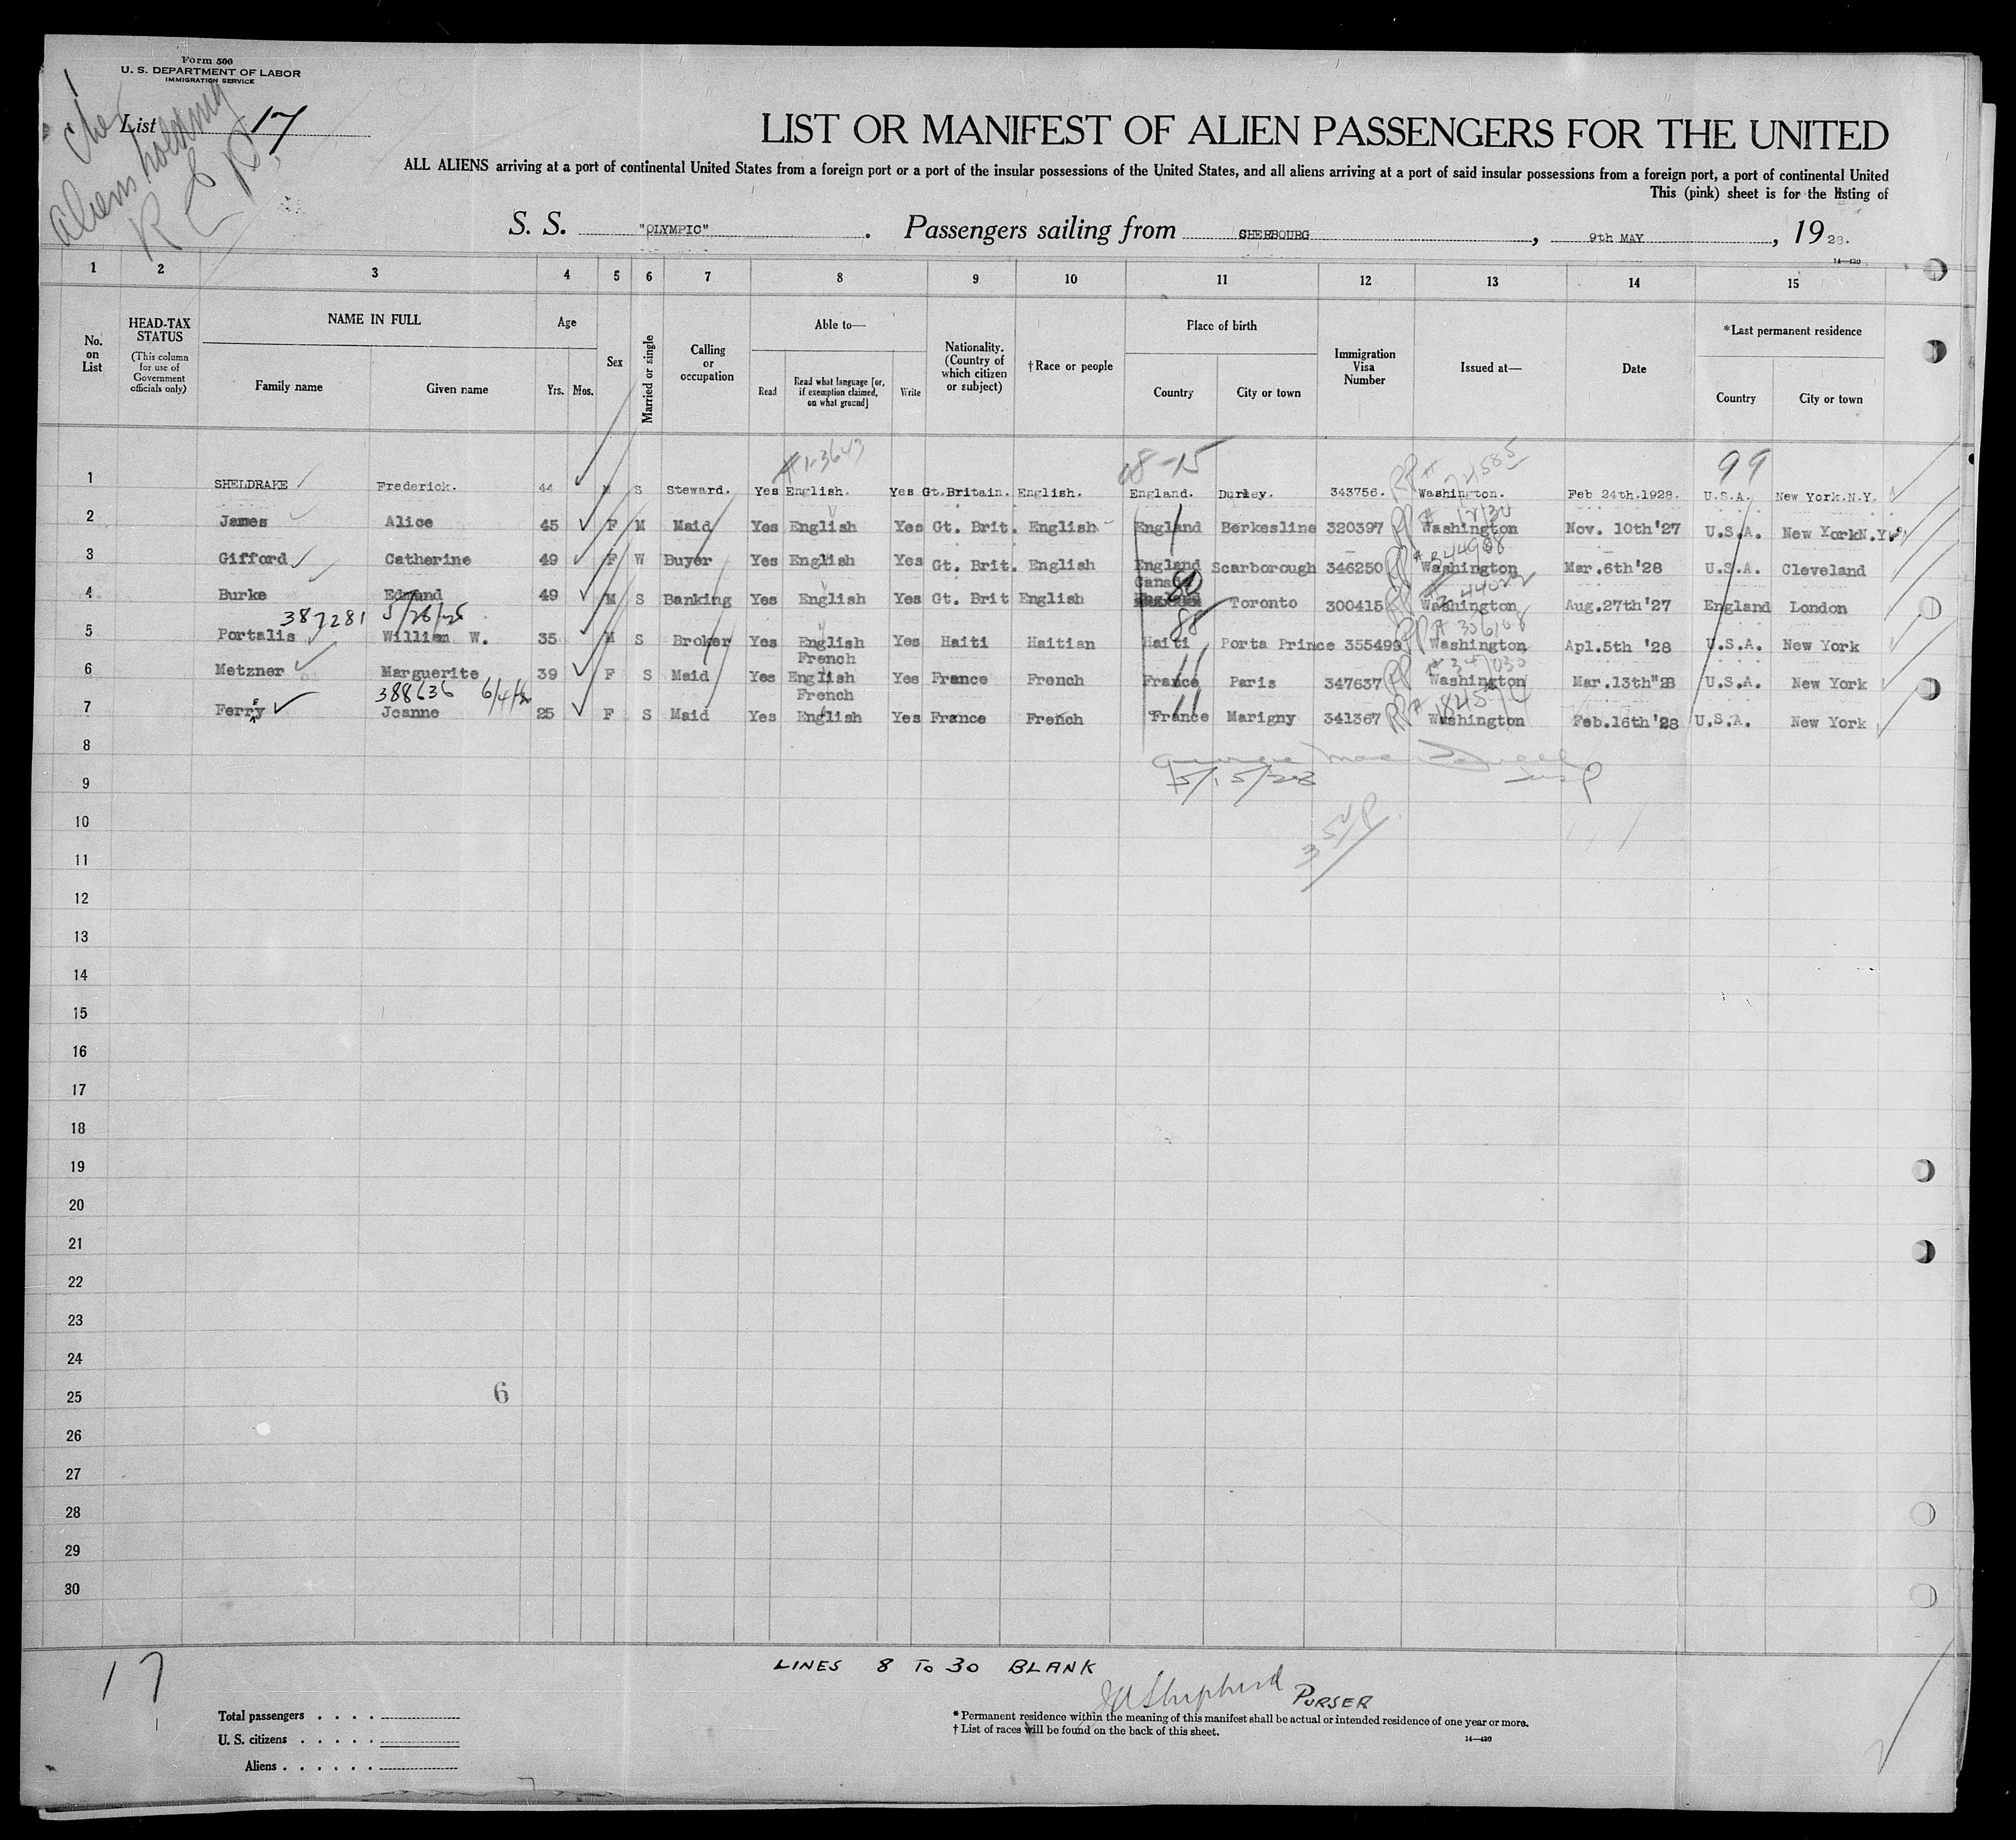 Form 500
U. S. DEPARTMENT OF LABOR
IMMIGRATION SERVICE
List 17
aliens holding
R P
LIST OR MANIFEST OF ALIEN PASSENGERS FOR THE UNITED
ALL ALIENS arriving at a port of continental United States from a foreign port or a port of the insular possessions of the United States, and all aliens arriving at a port of said insular possessions from a foreign port, a port of continental United
This (pink) sheet is for the listing of
S. S. "OLYMPIC". Passengers sailing from CHERBOURG, 9th MAY, 1928.
14—430
1 2 3 4 5 6 7 8 9 10 11 12 13 14 15
No. on List HEAD-TAX STATUS (This column for use of Government officials only) NAME IN FULL Family name Given name Age Yrs. Mos. Sex Married or single Calling or occupation Able to— Read Read what language [or, if exemption claimed, on what ground] Write Nationality. (Country of which citizen or subject) †Race or people Place of birth Country City or town Immigration Visa Number Issued at— Date *Last permanent residence Country City or town
#1-3643 99
1 SHELDRAKE Frederick. 44 M S Steward. Yes English. Yes Gt.Britain. English. England. Durley. 343756. Washington. Feb 24th.1928. U.S.A. New York.N.Y.
2 James Alice 45 F M Maid Yes English Yes Gt. Brit. English England Berkesline 320397 Washington Nov. 10th'27 U.S.A. New YorkN.Y.
3 Gifford Catherine 49 F W Buyer Yes English Yes Gt. Brit. English England Scarborough 346250 Washington Mar.6th'28 U.S.A. Cleveland
Canada
4 Burke Edmund 49 M S Banking Yes English Yes Gt. Brit English Toronto 300415 Washington Aug.27th'27 England London
387281
5 Portalis William W. 35 M S Broker Yes English French Yes Haiti Haitian Haiti Porta Prince 355499 Washington Apl.5th '28 U.S.A. New York
6 Metzner Marguerite 39 F S Maid Yes English French Yes France French France Paris 347637 Washington Mar.13th"28 U.S.A. New York
388636
7 Ferry Jeanne 25 F S Maid Yes English Yes France French France Marigny 341367 Washington Feb.16th'28 U.S.A. New York
8
5/15/28
9
10
11
12
13
14
15
16
17
18
19
20
21
22
23
24
25 6
26
27
28
29
30
17
LINES 8 TO 30 BLANK
JA Shepherd PURSER
Total passengers . . . .
U. S. citizens . . . . .
Aliens . . . . . .
* Permanent residence within the meaning of this manifest shall be actual or intended residence of one year or more.
† List of races will be found on the back of this sheet.
14—430